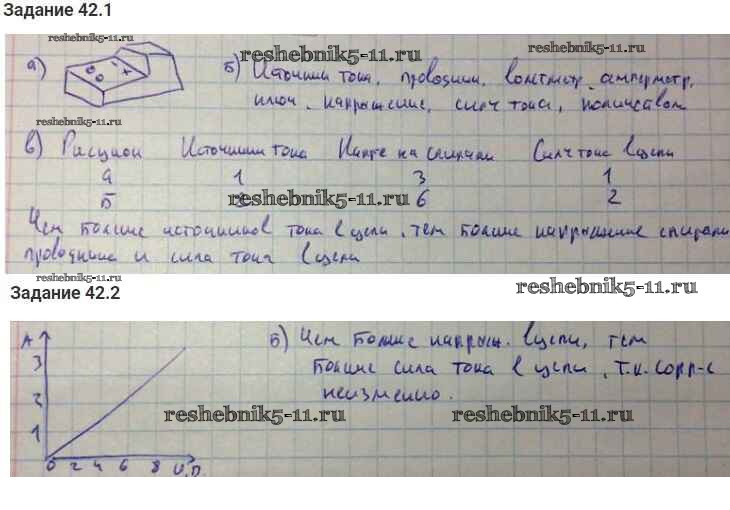 Задание 42.1
reshebnik5-11.ru
reshebnik5-11.ru
reshebnik5-11.ru
а)
б) Источники тока, проводники, вольтметр, амперметр,
ключ, напряжение, силу тока, количеством
reshebnik5-11.ru
в) Рисунок Источники тока Напр-е на спирали Сила тока в цепи
А 1 3 1
Б 6 2
reshebnik5-11.ru
Чем больше источников тока в цепи, тем больше напряжение спирали
проводника и сила тока в цепи
reshebnik5-11.ru
reshebnik5-11.ru
Задание 42.2
А
3
2
1
0 2 4 6 8 U,В.
б) Чем больше напряж. в цепи, тем
больше сила тока в цепи, т.к. сопр-е
неизменно.
reshebnik5-11.ru
reshebnik5-11.ru